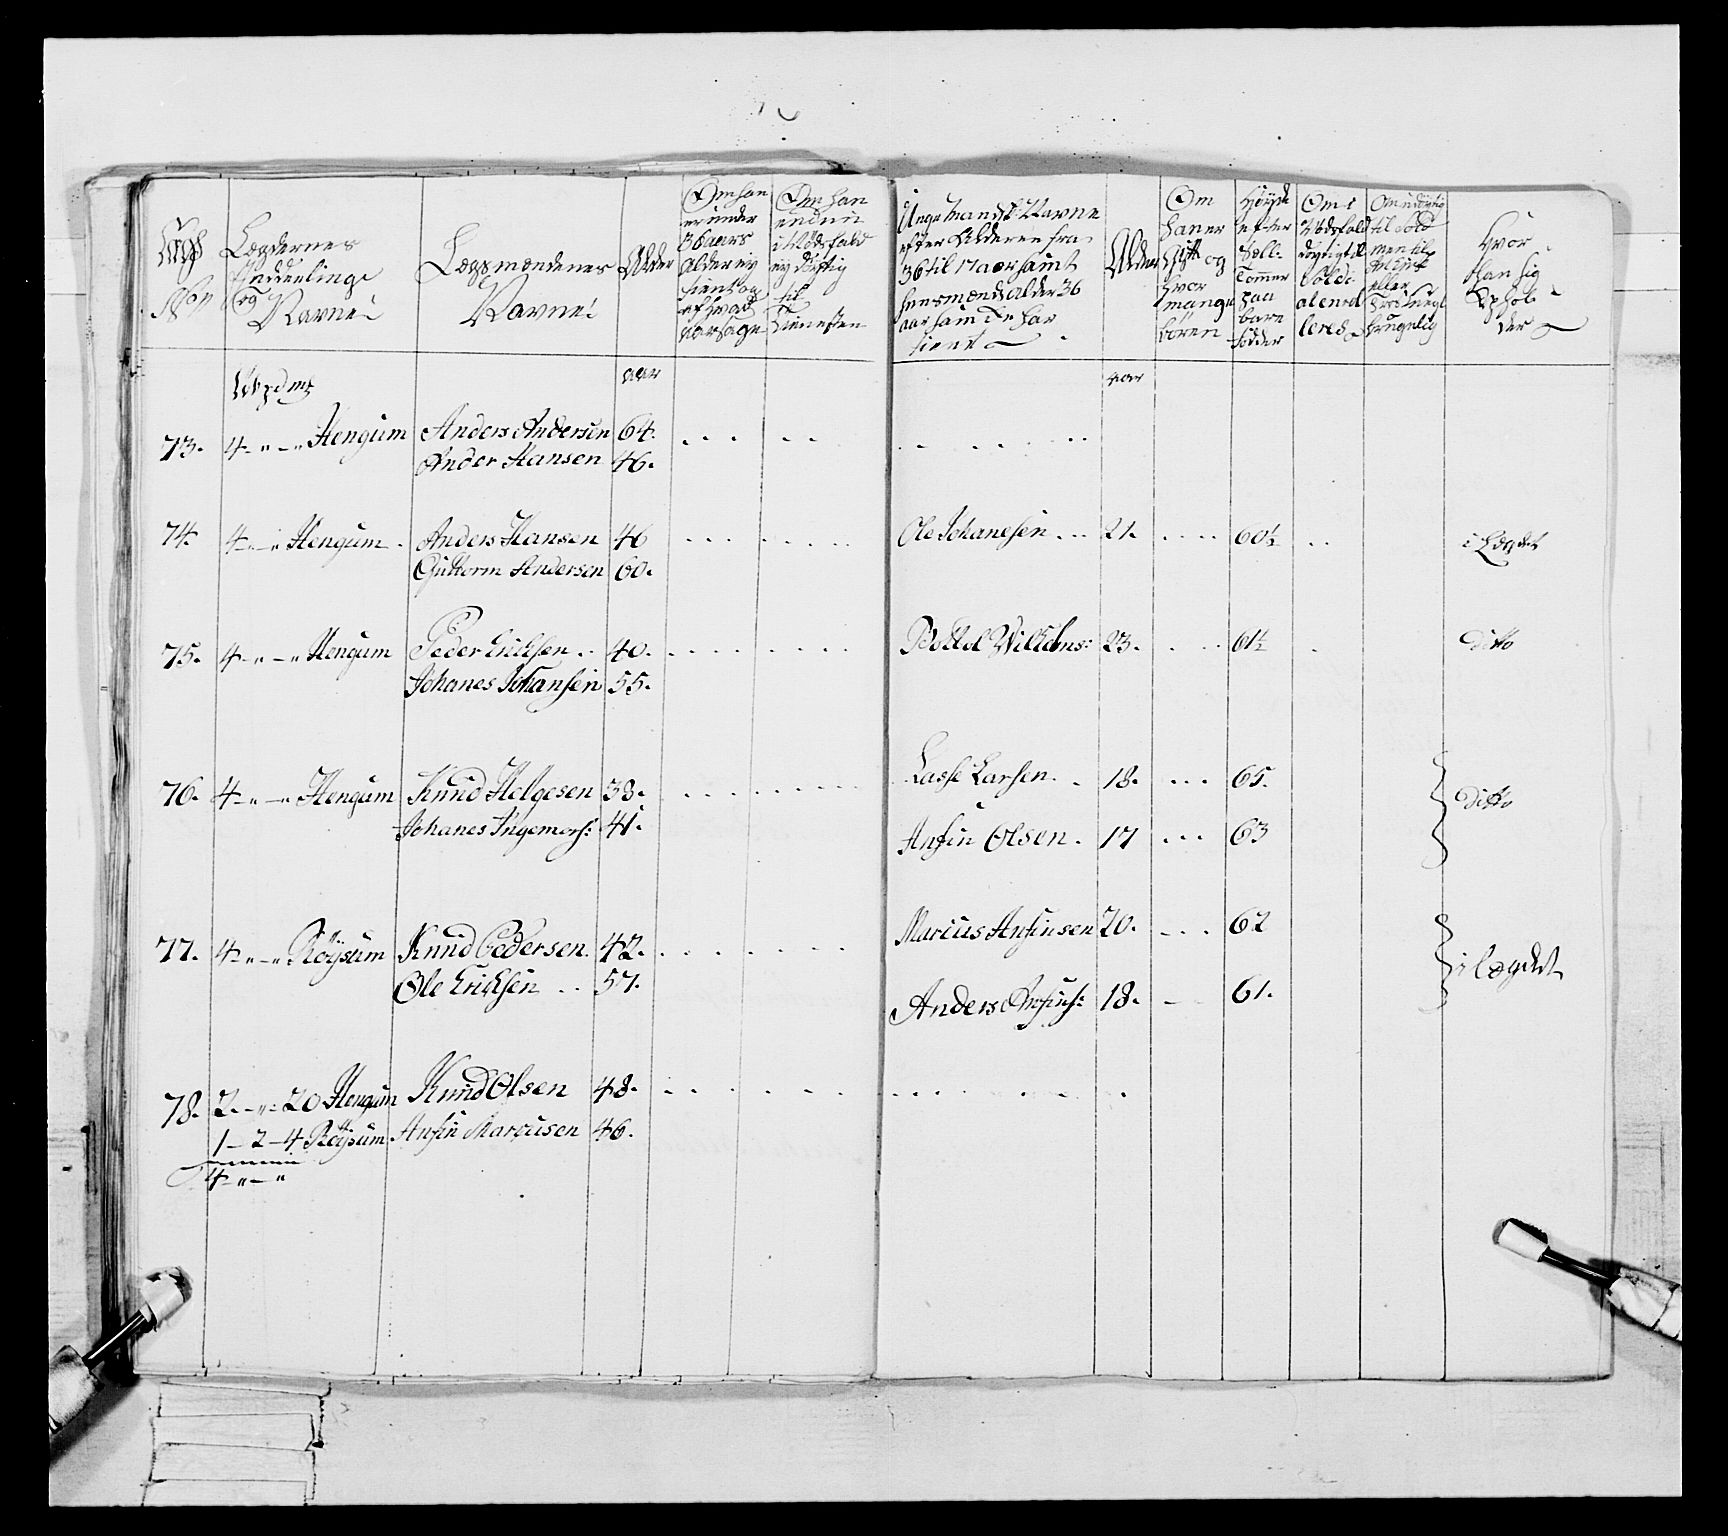 Lægdernes
Inddeelings
og
Navne
Lægsmændenes
Navne
Alder
Om han
er under
36 aars
Alder ey
tient og
af hvad
aarsage
Om han
endnu
i Nødsfald
ey døftig
til
Tienesten
Unge Mandsk: Navne
efter Alderen fra
36 til 17 aar samt
aar som De har
tient
Alder
Om
han er
gift og
hvor
mange
børen
Høyde
efter
Soll:
Tommer
paa
bare
fødder
Om i
Nødsfald
dögtig til
Solda-
Hvor
Han sig
Ophol-
der
aar
aar
73. 4 - " - " Hengum Anders Andersen 64.
Ander Hansen 46.
74. 4 - " - " Hengum Anders Hansen 46 Ole Johanesen 21. 60½ i Lægdet
Guttorm Andersen 60.
75. 4 - " - " Hengum Peder Ericksen 40. Bottol Wilhelms: 23. 61½ ditto
Johanes Johansen 55.
76. 4 - " - " Hengum Knud Helgesen 38. Lasse Larsen 18. 65. ditto
Johanes Ingemors: 41. Anfin Olsen 17 63
77. 4 - " - " Röysum Knud Pedersen 42. Marcus Anfinsen 20. 62 i lægdet
Ole Ericksen 57. Anders Anfins: 18. 61.
78. 2. - " - 20 Hengum Knud Olsen 48.
1 - 2 - 4 Röysum Anfin Marcusen 46.
4 - " - "